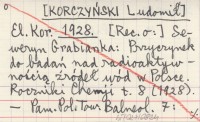 [KORCZYŃSKI Ludomił]
El. Kor. 1928. [Rec. o:] Se-
weryn Grabianka: Przyczynek
do badań nad radioaktyw-
nością źródeł wód w Polsce.
Roczniki Chemji t. 8 (1928).
— Pam. Pol. Tow. Balneol. 7: